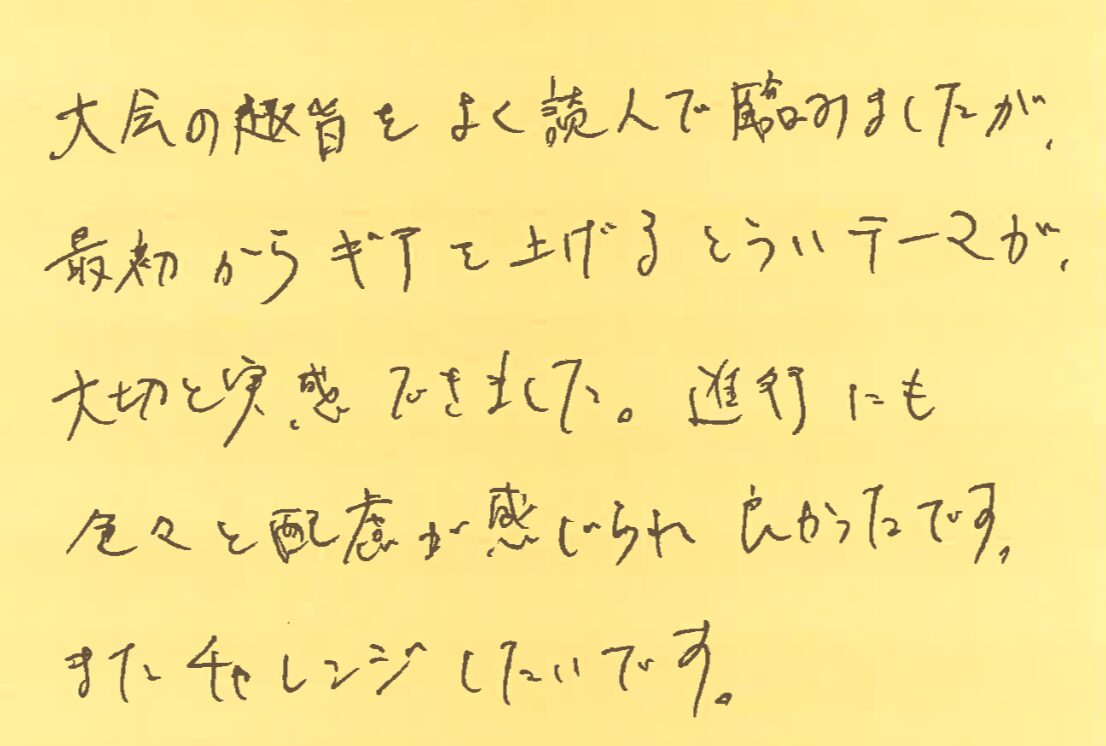 大会の趣旨をよく読んで臨みましたが、
最初からギアを上げるというテーマが、
大切と実感できました。進行にも
色々と配慮が感じられ良かったです、
またチャレンジしたいです。